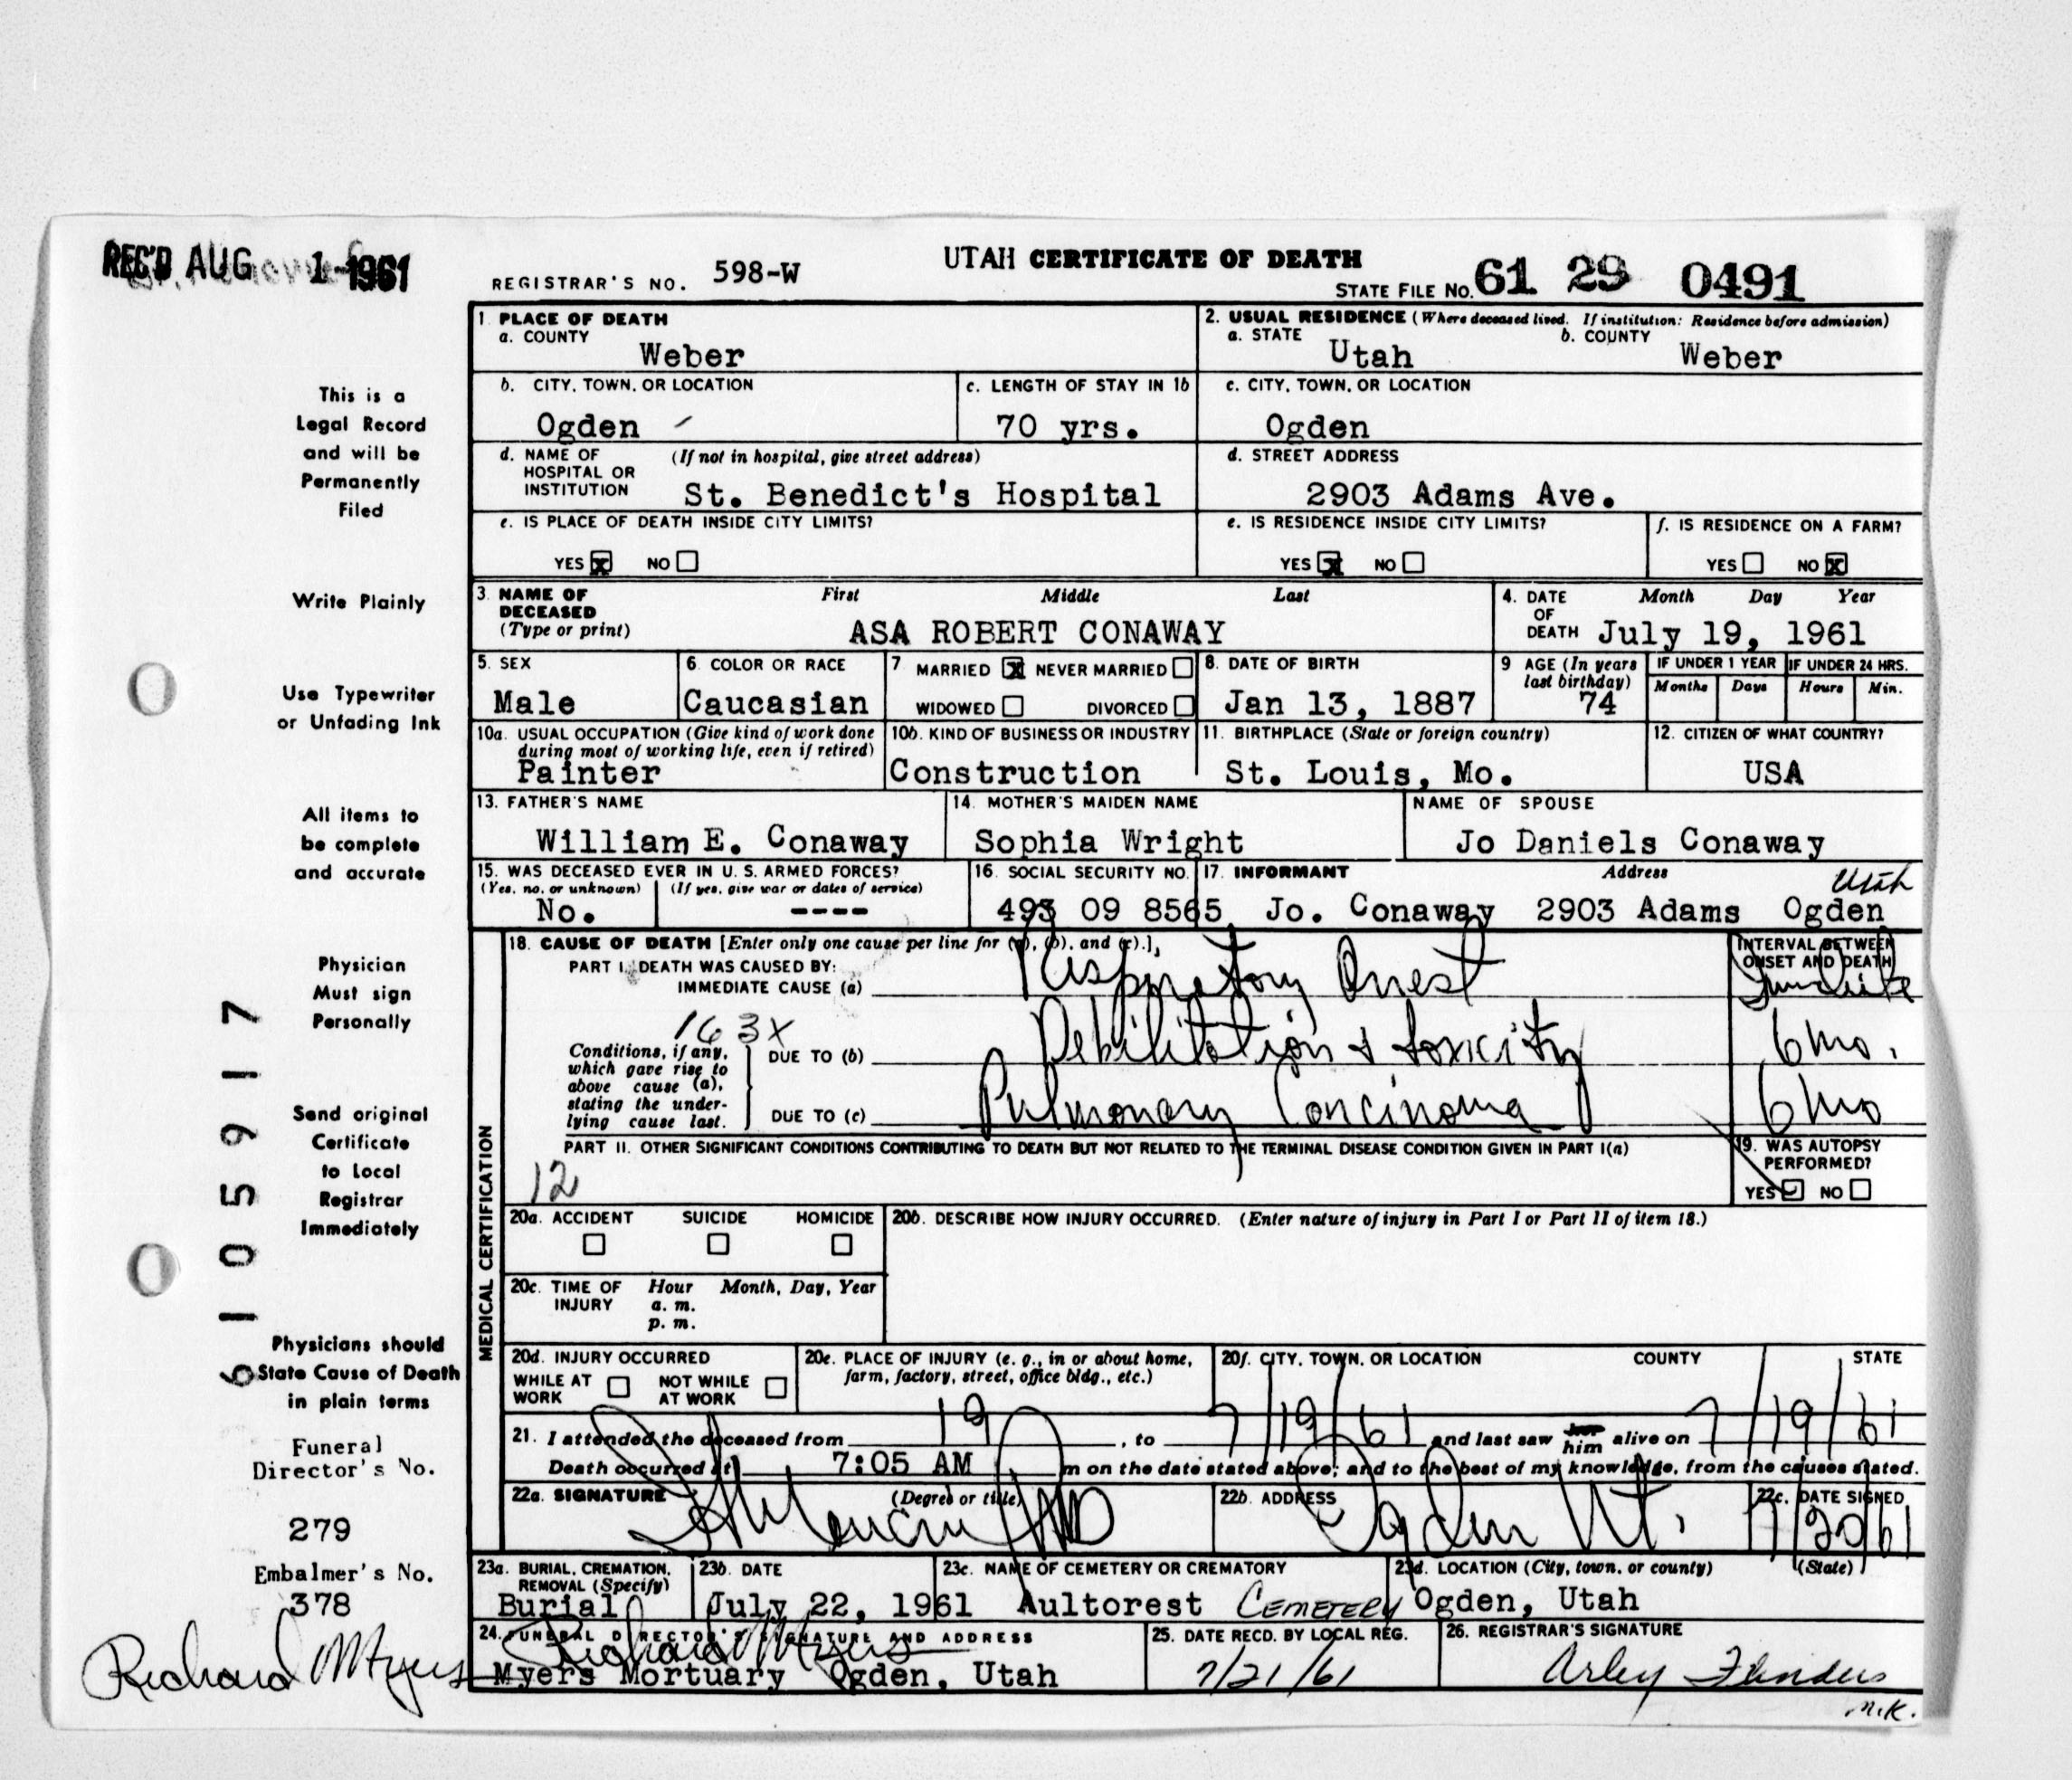 REC'D AUG 1-1961
REGISTRAR'S NO. 598-W
UTAH CERTIFICATE OF DEATH
STATE FILE NO. 61 29 0491
1. PLACE OF DEATH
a. COUNTY
Weber
2. USUAL RESIDENCE (Where deceased lived. If institution: Residence before admission)
a. STATE b. COUNTY
Utah Weber
b. CITY, TOWN, OR LOCATION
Ogden
c. LENGTH OF STAY IN 1b
70 yrs.
c. CITY, TOWN, OR LOCATION
Ogden
d. NAME OF HOSPITAL OR INSTITUTION (If not in hospital, give street address)
St. Benedict's Hospital
d. STREET ADDRESS
2903 Adams Ave.
e. IS PLACE OF DEATH INSIDE CITY LIMITS?
YES X NO
e. IS RESIDENCE INSIDE CITY LIMITS?
YES X NO
f. IS RESIDENCE ON A FARM?
YES NO X
3. NAME OF DECEASED (Type or print) First Middle Last
ASA ROBERT CONAWAY
4. DATE OF DEATH Month Day Year
July 19, 1961
5. SEX
Male
6. COLOR OR RACE
Caucasian
7. MARRIED X NEVER MARRIED
WIDOWED DIVORCED
8. DATE OF BIRTH
Jan 13, 1887
9 AGE (In years last birthday)
74
IF UNDER 1 YEAR IF UNDER 24 HRS.
Months Days Hours Min.
10a. USUAL OCCUPATION (Give kind of work done during most of working life, even if retired)
Painter
10b. KIND OF BUSINESS OR INDUSTRY
Construction
11. BIRTHPLACE (State or foreign country)
St. Louis, Mo.
12. CITIZEN OF WHAT COUNTRY?
USA
13. FATHER'S NAME
William E. Conaway
14. MOTHER'S MAIDEN NAME
Sophia Wright
NAME OF SPOUSE
Jo Daniels Conaway
15. WAS DECEASED EVER IN U. S. ARMED FORCES?
(Yes, no, or unknown) (If yes, give war or dates of service)
No. ----
16. SOCIAL SECURITY NO.
493 09 8565
17. INFORMANT Address
Jo. Conaway 2903 Adams Ogden Utah
MEDICAL CERTIFICATION
18. CAUSE OF DEATH [Enter only one cause per line for (a), (b), and (c).]
PART I. DEATH WAS CAUSED BY:
IMMEDIATE CAUSE (a) Respiratory Arrest
INTERVAL BETWEEN ONSET AND DEATH
163X
Conditions, if any, which gave rise to above cause (a), stating the underlying cause last.
DUE TO (b) Debilitation & toxicity 6 mo.
DUE TO (c) Pulmonary Carcinoma 6 mo
PART II. OTHER SIGNIFICANT CONDITIONS CONTRIBUTING TO DEATH BUT NOT RELATED TO THE TERMINAL DISEASE CONDITION GIVEN IN PART I(a)
12
19. WAS AUTOPSY PERFORMED?
YES NO
20a. ACCIDENT SUICIDE HOMICIDE
20b. DESCRIBE HOW INJURY OCCURRED. (Enter nature of injury in Part I or Part II of item 18.)
20c. TIME OF INJURY Hour Month, Day, Year
a. m.
p. m.
20d. INJURY OCCURRED
WHILE AT WORK NOT WHILE AT WORK
20e. PLACE OF INJURY (e. g., in or about home, farm, factory, street, office bldg., etc.)
20f. CITY, TOWN, OR LOCATION COUNTY STATE
21. I attended the deceased from 19, to 7/19/61 and last saw him alive on 7/19/61
Death occurred at 7:05 AM m on the date stated above; and to the best of my knowledge, from the causes stated.
22a. SIGNATURE (Degree or title)
MD
22b. ADDRESS
Ogden Ut.
22c. DATE SIGNED
7/20/61
23a. BURIAL, CREMATION, REMOVAL (Specify)
Burial
23b. DATE
July 22, 1961
23c. NAME OF CEMETERY OR CREMATORY
Aultorest Cemetery
23d. LOCATION (City, town, or county) (State)
Ogden, Utah
24. FUNERAL DIRECTOR'S SIGNATURE AND ADDRESS
Richard Myers
Myers Mortuary Ogden, Utah
25. DATE RECD. BY LOCAL REG.
7/21/61
26. REGISTRAR'S SIGNATURE
Arley Flinders
M.K.
This is a
Legal Record
and will be
Permanently
Filed
Write Plainly
Use Typewriter
or Unfading Ink
All items to
be complete
and accurate
Physician
Must sign
Personally
Send original
Certificate
to Local
Registrar
Immediately
Physicians should
State Cause of Death
in plain terms
Funeral
Director's No.
279
Embalmer's No.
378
Richard Myers
6105917